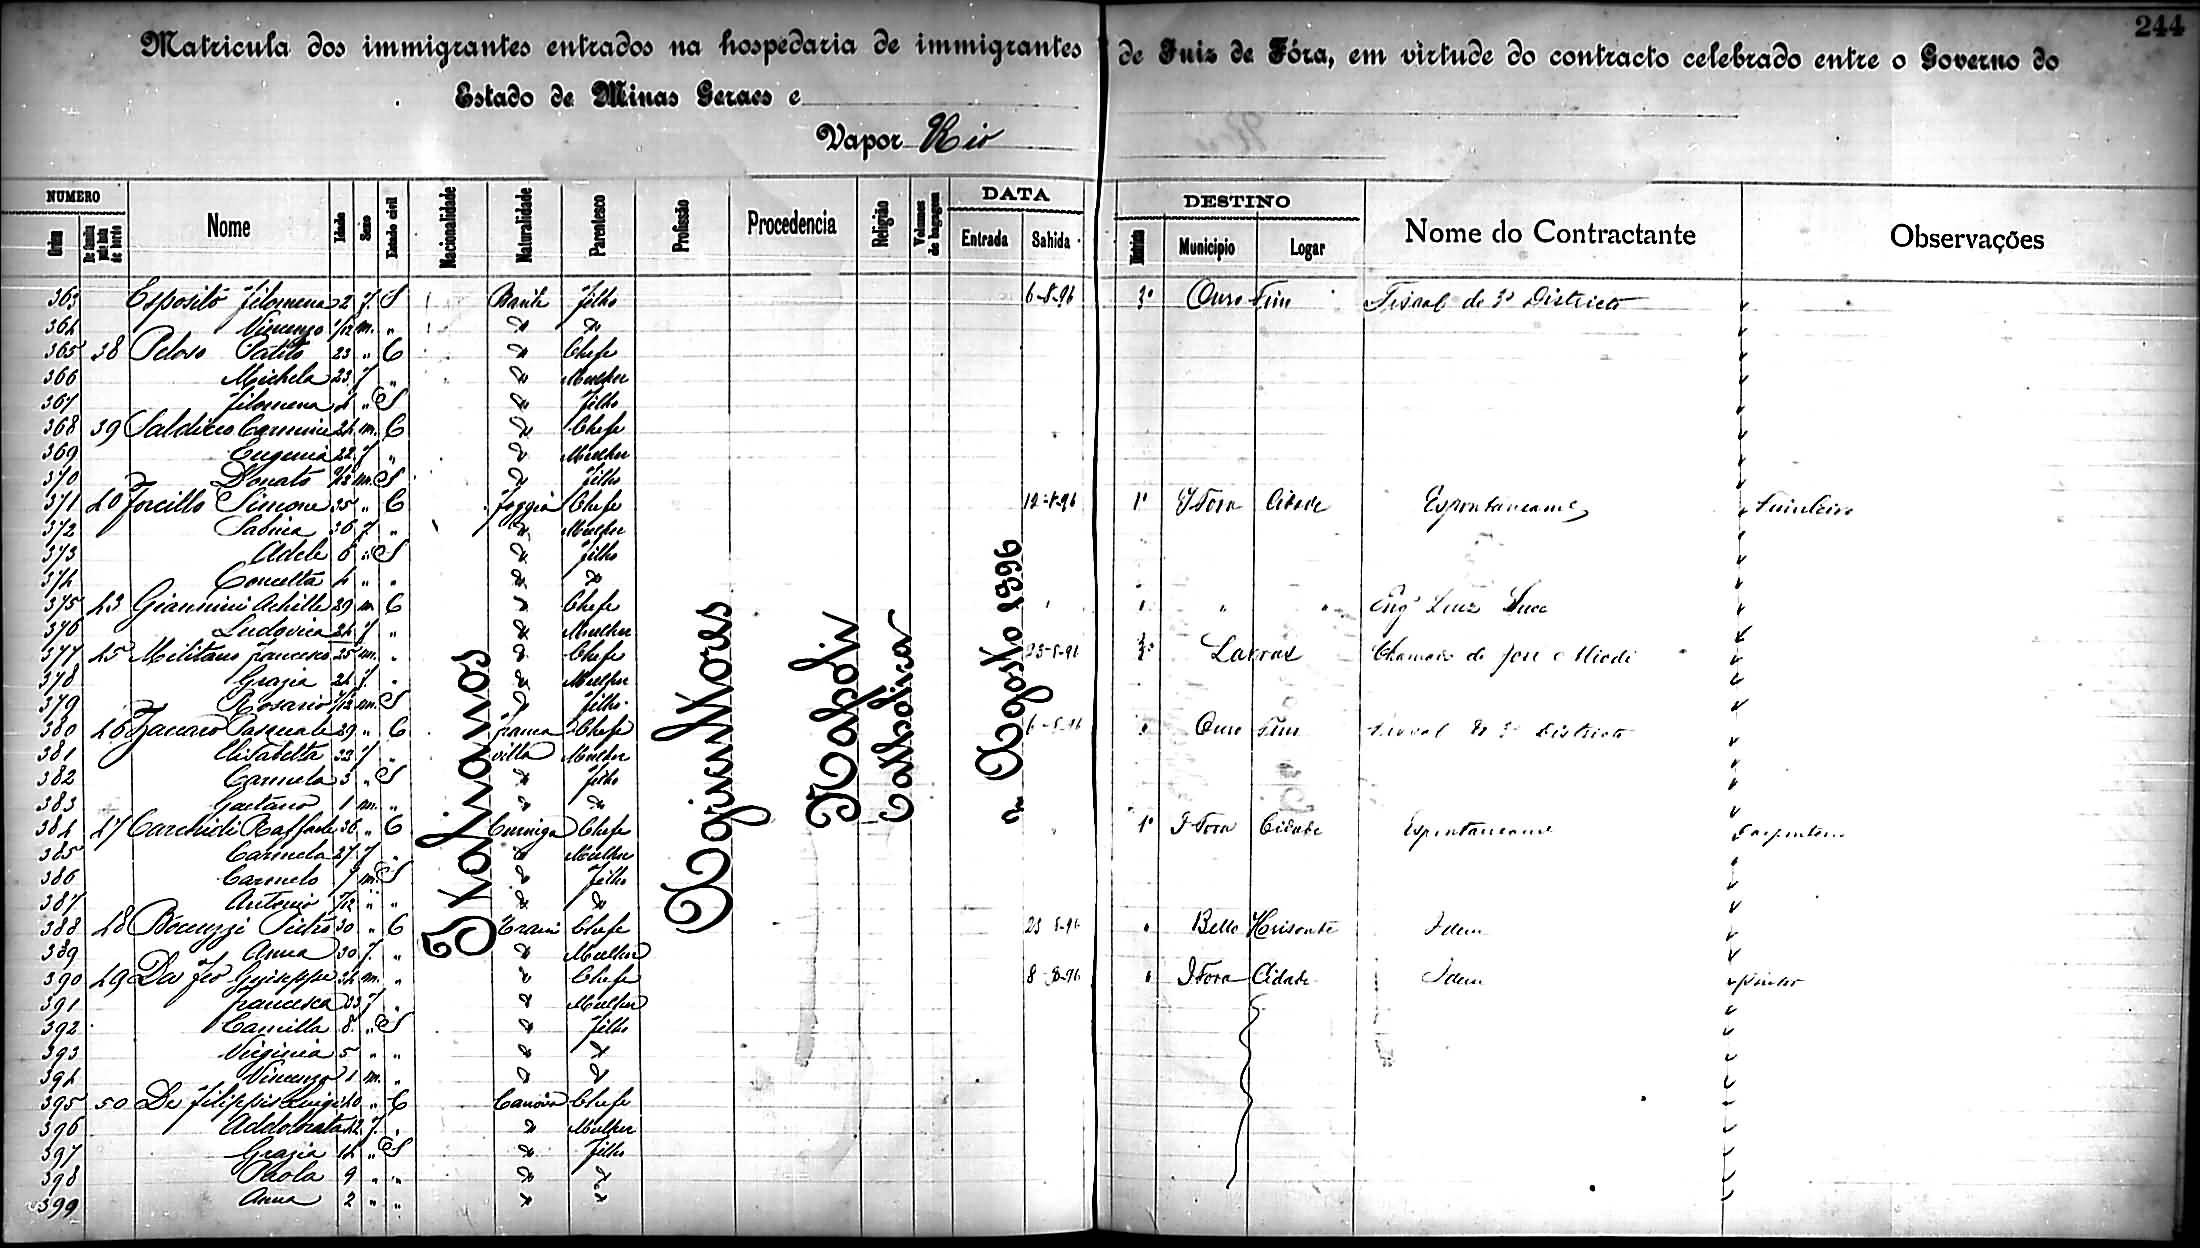 244
Matricula dos immigrantes entrados na hospedaria de immigrantes de Juiz de Fóra, em virtude do contracto celebrado entre o Governo do
Estado de Minas Geraes e
Vapor Rio
NUMERO DATA DESTINO
Ordem Nome Idade Sexo Estado civil Nacionalidade Naturalidade Parentesco Profissão Procedencia Religião Volumes de bagagem Entrada Sahida Municipio Logar Nome do Contractante Observações
Italianos Agricultores Napoli Catholica Agosto 1896
363 Esposito Filomena 2 f. S Filho 6-8-96 3º Ouro Fino Fiscal do 3º Districto
364 Vincenzo /12 m. "
365 38 Peloso 23 " C Chefe
366 Michela 23 f " Mulher
367 Filomena 4 " S Filho
368 39 24 m. C Chefe
369 Eugenia 22 f " Mulher
370 Donato /12 m. S Filho
371 40 Forcillo Simone 35 " C Foggia Chefe 12-8-96 1º J Fora Cidade
372 Sabina 36 f. " Mulher
373 Adele 6 " S Filho
374 Concetta 4 " "
375 43 Giannini Achille 29 m C Chefe " " " Engº Luiz
376 Ludovica 24 f " Mulher
377 45 Militano Francesco 25 m. " Chefe 23-8-96 Lavras Chamado de José
378 Grazia 21 f. " Mulher
379 Rosario /12 m. S Filho
380 46 Zaccaro Pasquale 29 " C Franca Chefe 6-8-96 " Ouro Fino Fiscal do 3º Districto
381 Elisabetta 32 f " villa Mulher
382 Carmela 3 " S Filho
383 Gaetano 1 m. "
384 47 Raffaele 36 " C Chefe 1º J Fora Cidade
385 Carmela 27 f " Mulher
386 Carmelo 7 m. S Filho
387 Antonio /12 " "
388 48 Pietro 30 " C Trani Chefe 23 8-96 " Bello Horisonte Idem
389 Anna 30 f. " Mulher
390 49 De Feo Giuseppe 34 m. " Chefe 8-8-96 " J Fora Cidade Idem pintor
391 Francesca 33 f " Mulher
392 Camilla 8 " S Filho
393 Virginia 5 " "
394 Vincenzo 1 m. "
395 50 De Filippis Luigi 40 " C Chefe
396 Addolorata 42 f. " Mulher
397 Grazia 14 " S Filho
398 Paola 9 " "
399 Anna 2 " "